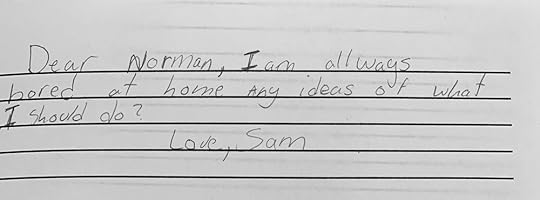 Dear Norman, I am allways
bored at home Any ideas of what
I should do?
Love, Sam